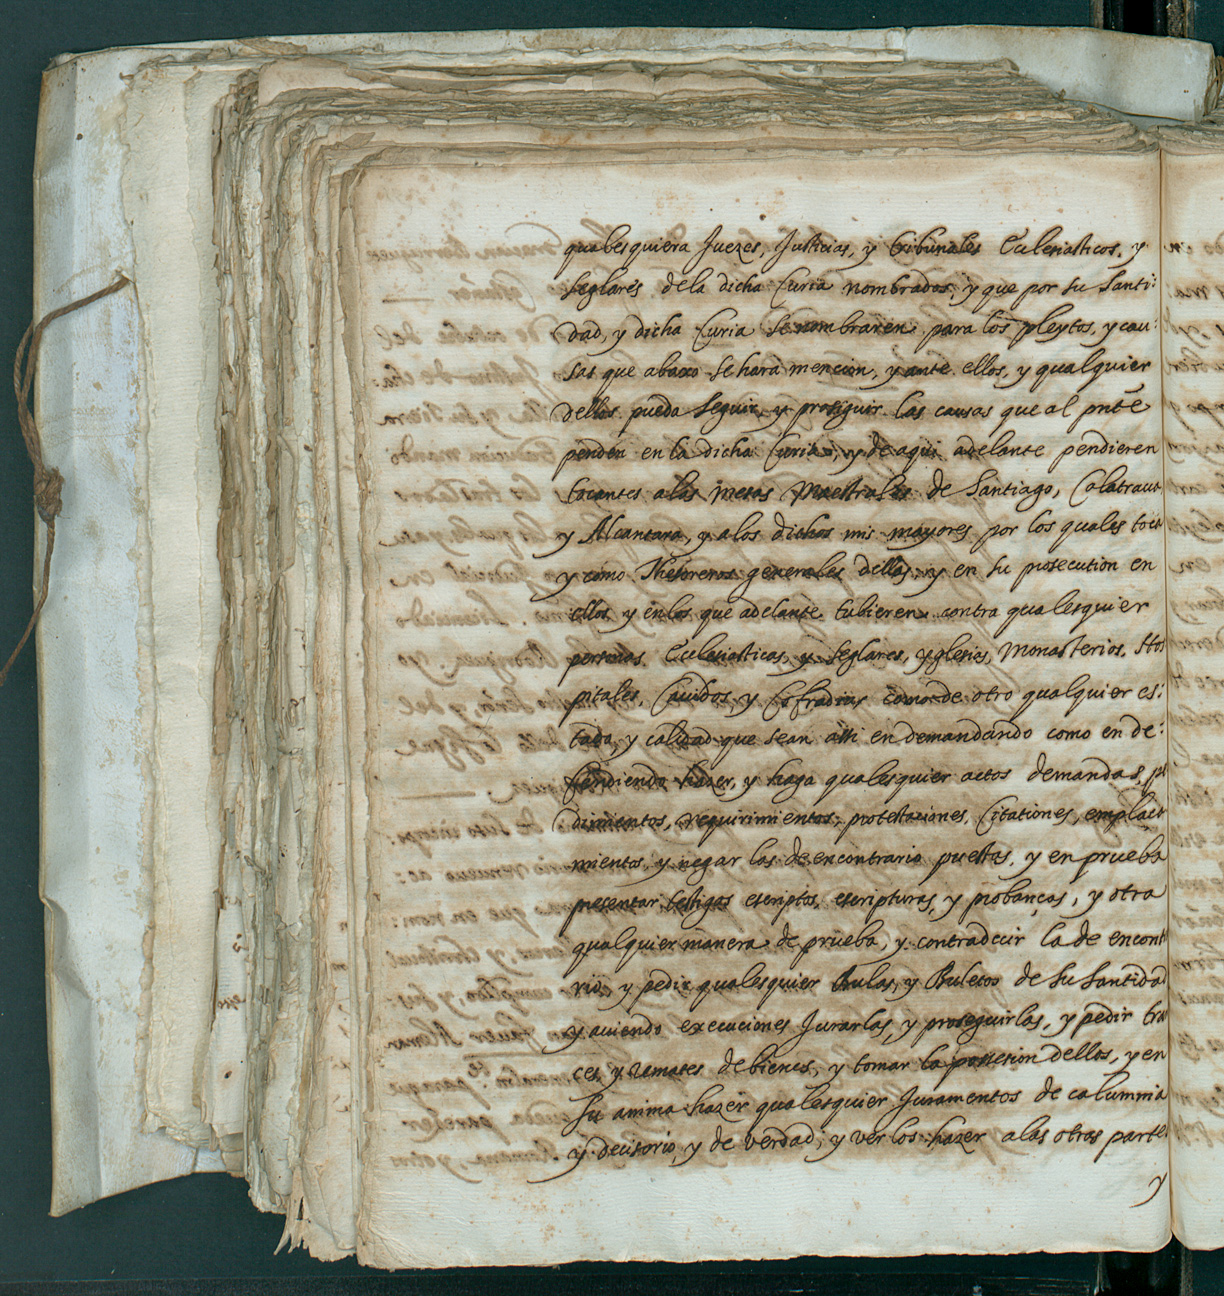 qualesquiera Juezes, Justicias, y tribunales Eclesiasticos, y
seglares dela dicha Curia nombrados, y que por su Santi:
dad, y dicha Curia se nombraren para los pleytos, y cau:
sas que abaxo se hara mencion, y ante ellos, y qualquier
dellos pueda seguir, y proseguir las causas que al pnte
penden en la dicha Curia, y de aqui adelante pendieren
tocantes alas mesas Maestrales de Santiago, Calatraua
y Alcantara, y a los dichos mis mayores por los quales
y como Thesoreros generales dellas, y en su prosecution en
ellos y en los que adelante tubieren contra qualesquier
personas Eclesiasticas, y seglares, yglesias, Monasterios, Hos
pitales, Cauildos, y Cofradias como de otro qualquier es:
tado, y calidad que sean assi en demandando como en de:
fendiendo hazer, y haga qualesquier actos demandas, pe
dimientos, requirimientos, protestaciones, Citationes, emplaca
mientos, y negar las de encontrario puestas, y en prueba
presentar testigos escriptos, escripturas, y probanças, y otra
qualquier manera de prueba, y contradecir la de encontra
rio, y pedir qualesquier Bulas, y Buletos de su Santidad
y auiendo execuciones Jurarlas, y proseguirlas, y pedir tran
ces, y remates de bienes, y tomar la possesion dellos, y en
su anima hazer qualesquier Juramentos de calumnia
y decisorio, y de verdad, y ver los hazer alas otras partes
y